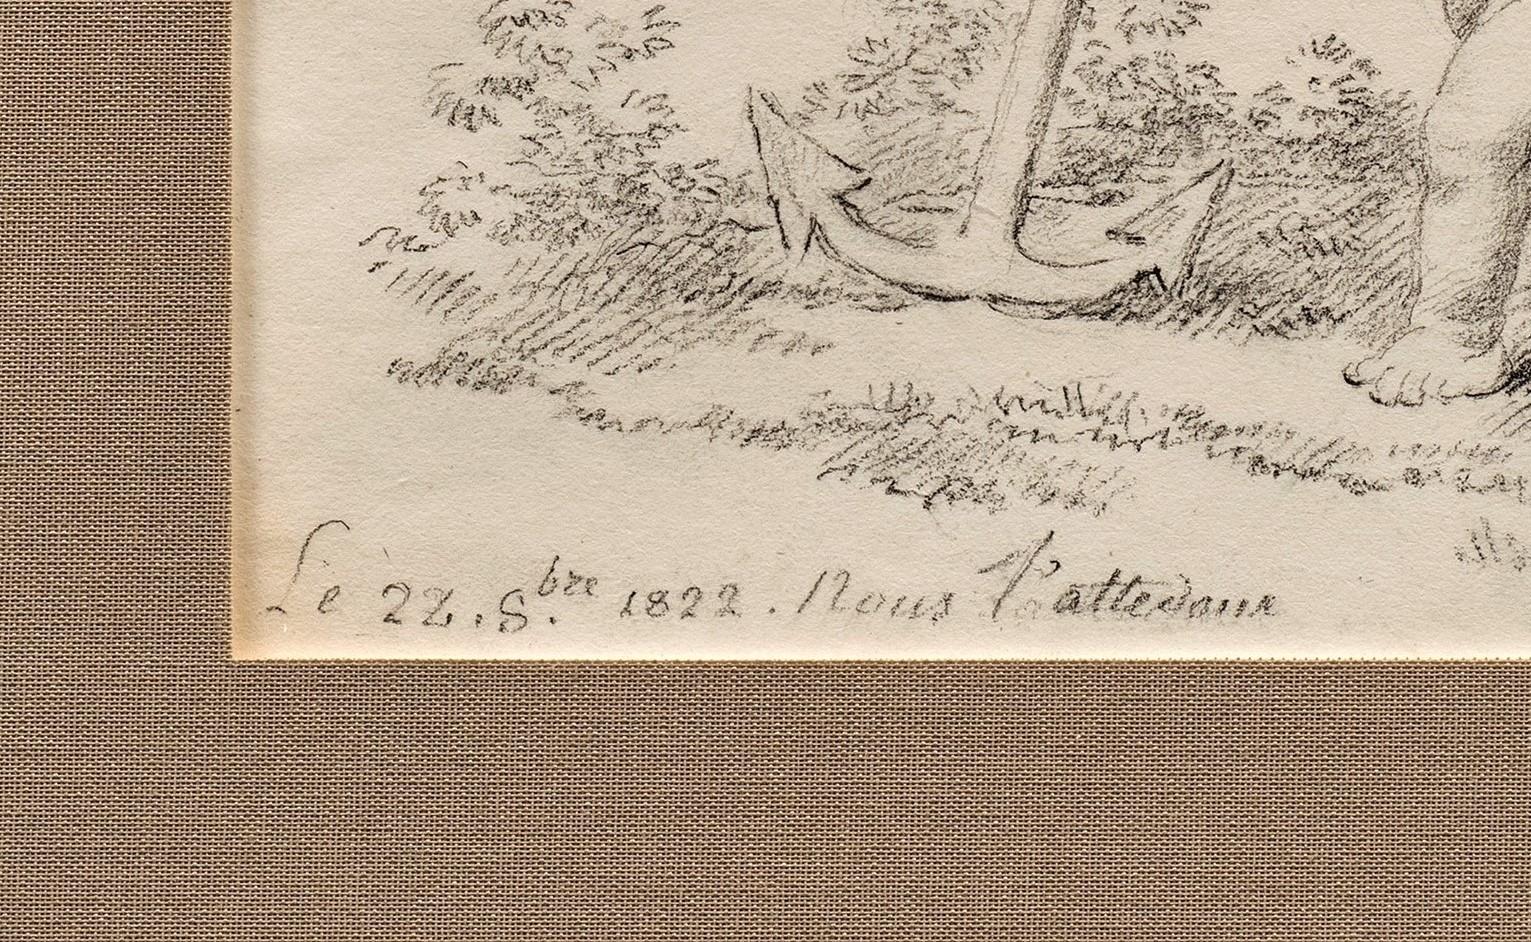 Le 22. S.bre 1822. Nous l'attedons